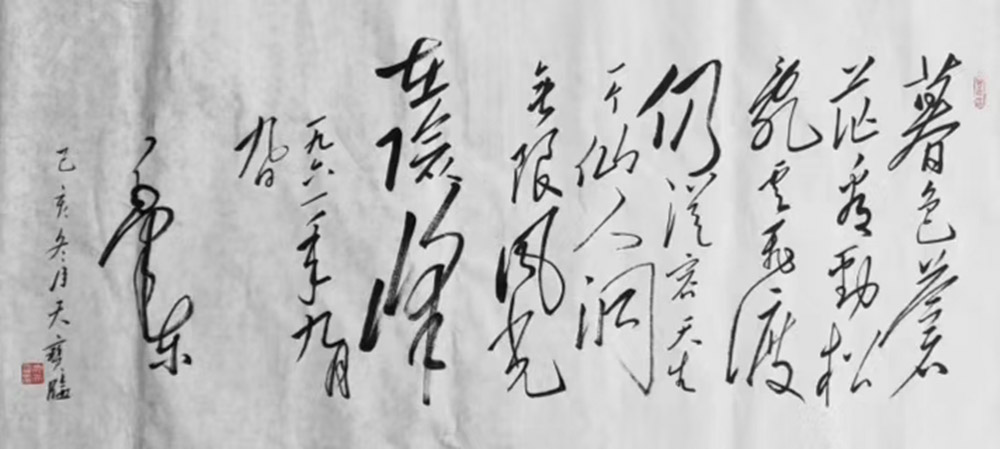 暮色苍
茫看劲松
乱云飞渡
仍从容天生
一个仙人洞
无限风光
在险峰
一九六一年九月
九日
毛泽东
己亥冬月天宝临